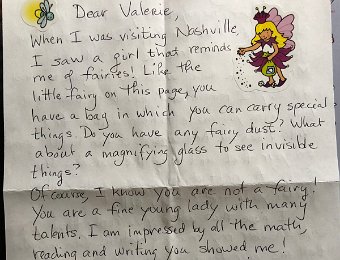 Dear Valerie,
When I was visiting Nashville,
I saw a girl that reminds
me of fairies! Like the
little fairy on this page, you
have a bag in which you can carry special
things. Do you have any fairy dust? What
about a magnifying glass to see invisible
things?
Of course, I know you are not a fairy!
You are a fine young lady with many
talents. I am impressed by all the math,
reading and writing you showed me!